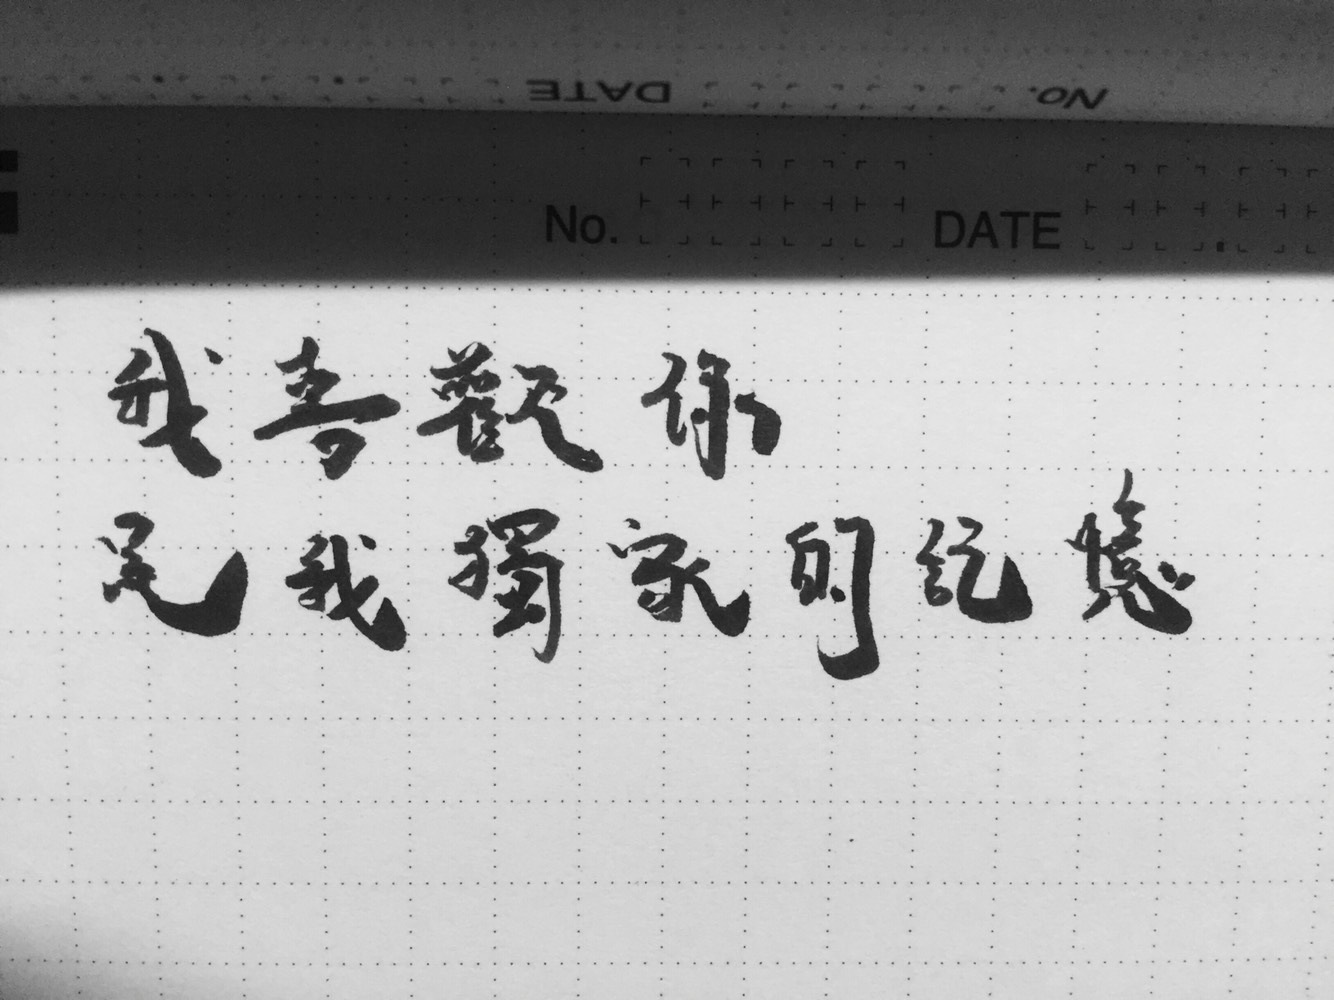 No. DATE
No. DATE
我喜歡你
是我獨家的記憶